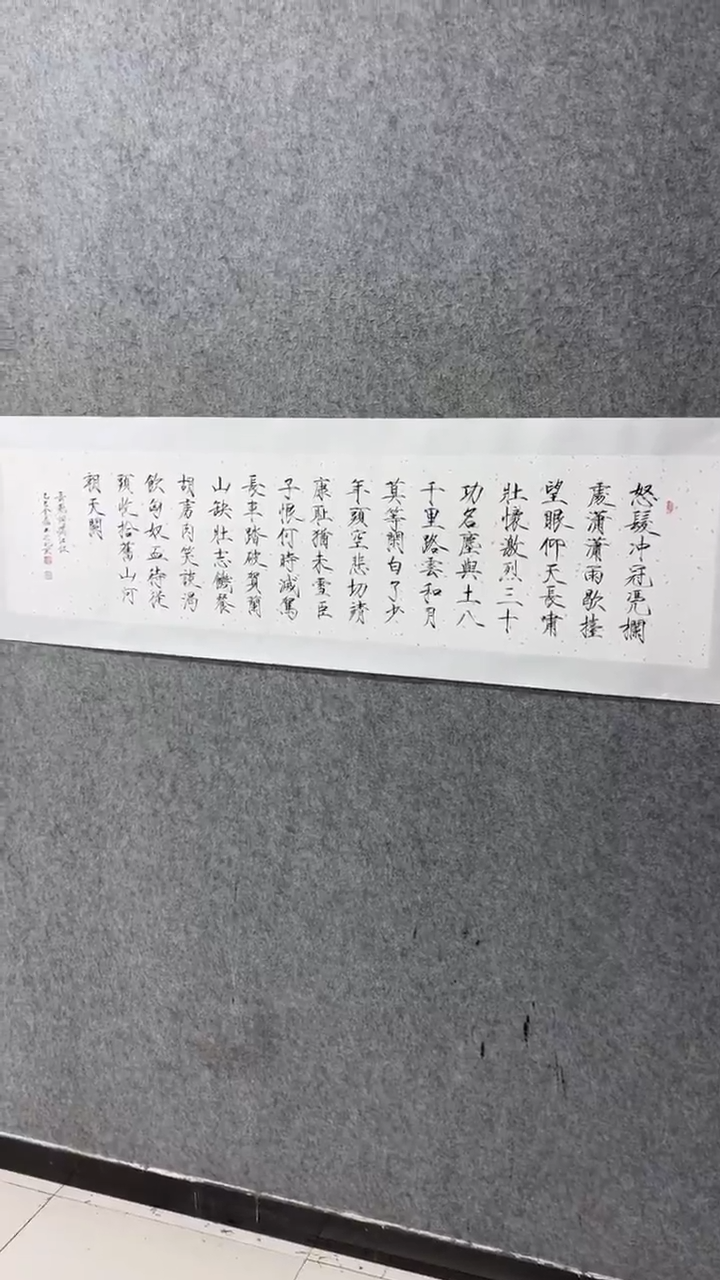 怒髮冲冠凭欄
處瀟瀟雨歇擡
望眼仰天長嘯
壯懷激烈三十
功名塵與土八
千里路雲和月
莫等閑白了少
年頭空悲切靖
康耻猶未雪臣
子恨何時滅駕
長車踏破賀蘭
山缺壯志饑餐
胡虜肉笑談渴
飲匈奴血待從
頭收拾舊山河
朝天闕
岳飛詞滿江紅